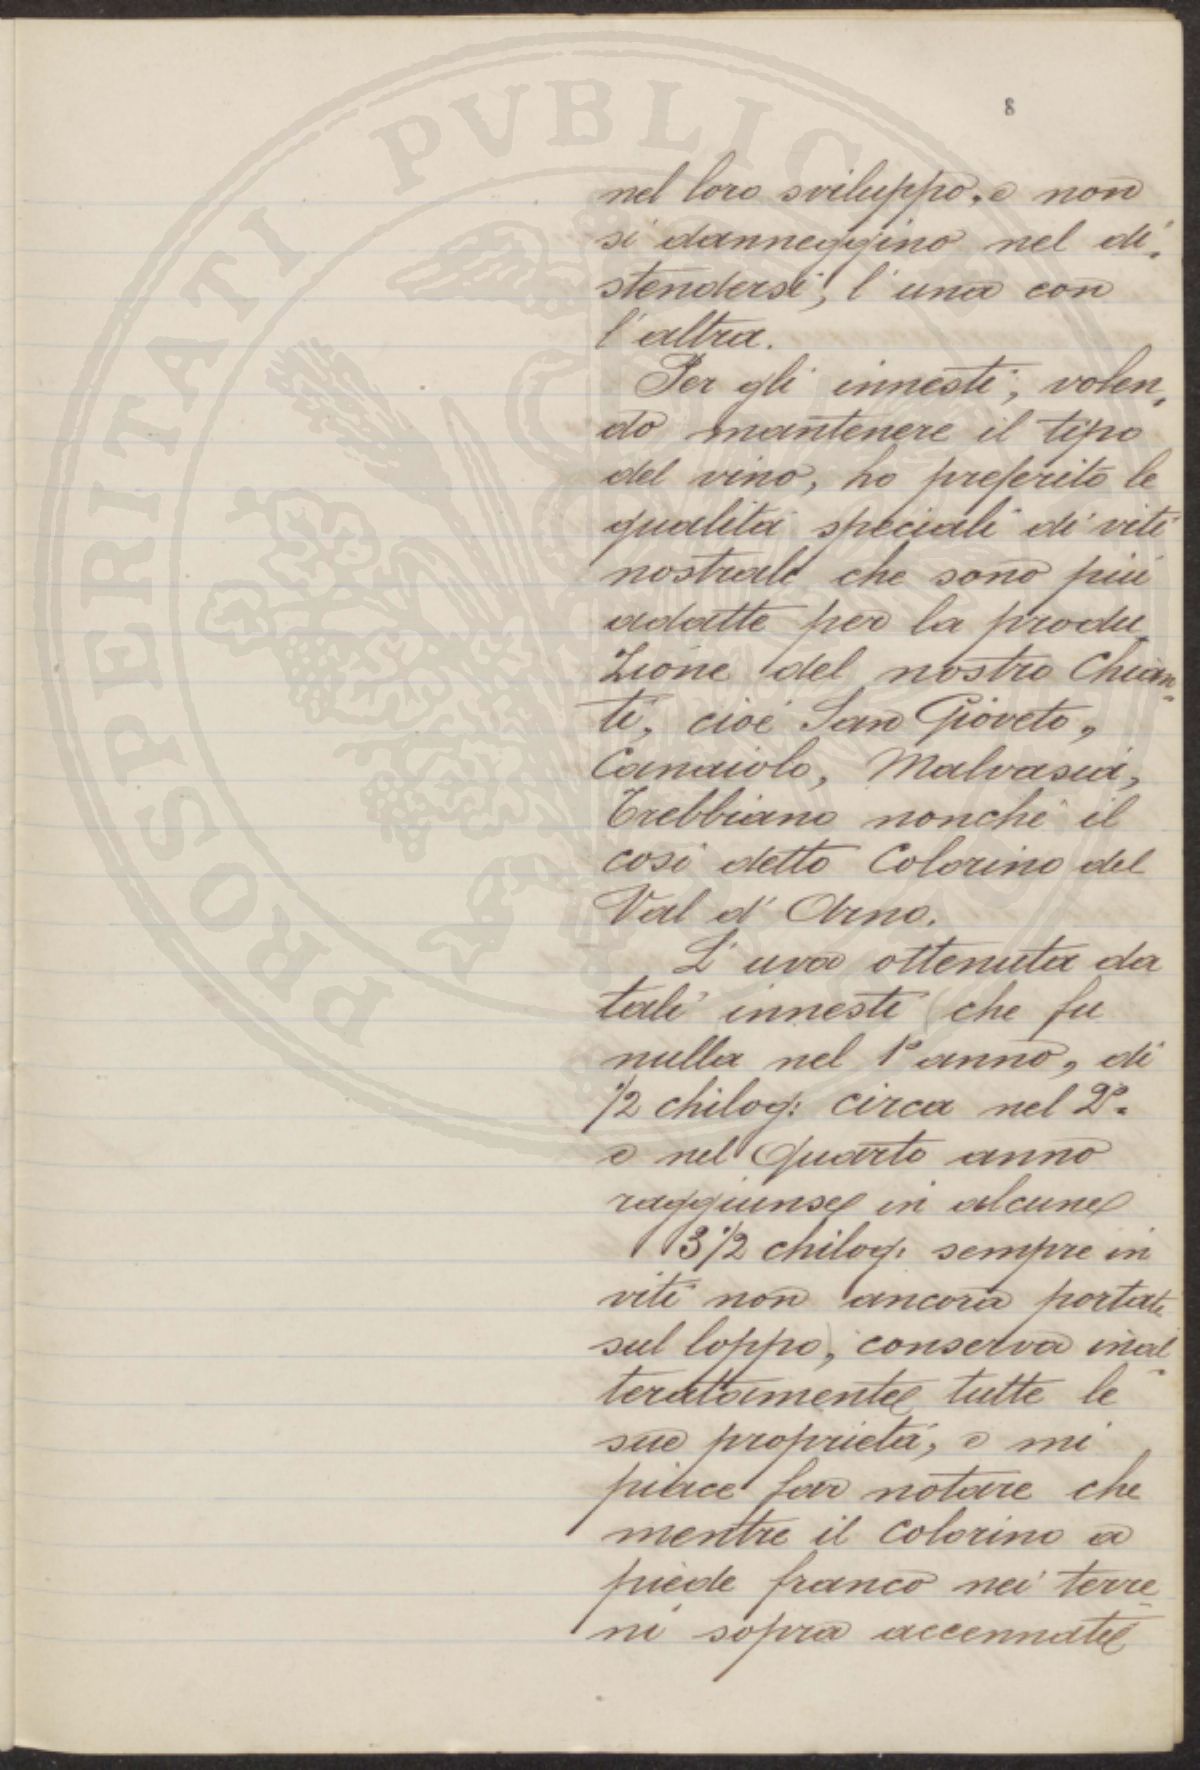 PROSPERITATI PUBLICAE
8
nel loro sviluppo, e non
si danneggino nel di-
stendersi, l'una con
l'altra.
Per gli innesti, volen-
do mantenere il tipo
del vino, ho preferito le
qualità speciali di viti
nostrale che sono più
adatte per la produ-
zione del nostro Chian-
ti, cioè San Gioveto,
Canaiolo, Malvasia,
Trebbiano nonchè il
così detto Colorino del
Val d'Arno.
L'uva ottenuta da
tali innesti (che fu
nulla nel 1° anno, di
1/2 chilog: circa nel 2°.
e nel quarto anno
raggiunse in alcune
3 1/2 chilog: sempre in
viti non ancora portate
sul loppo), conserva inal-
teratamente tutte le
sue proprietà, e mi
piace far notare che
mentre il Colorino a
piede franco nei terre-
ni sopra accennati